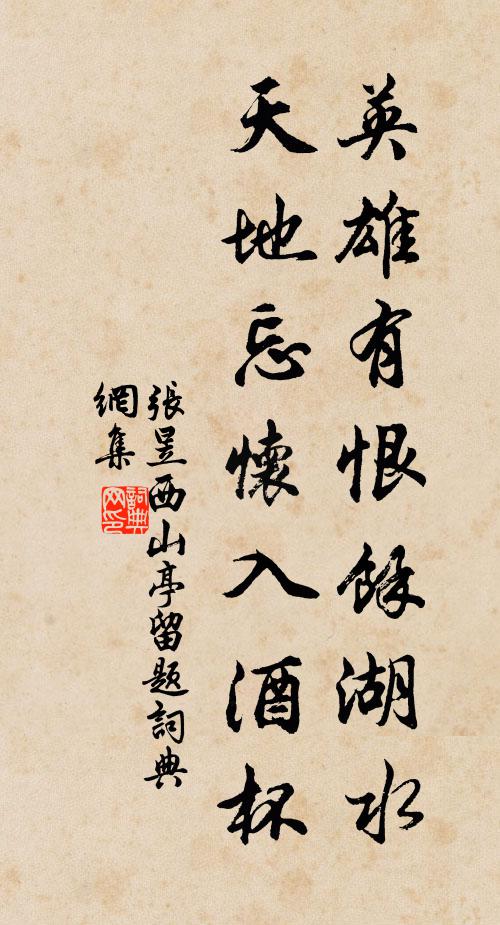 英雄有恨餘湖水
天地忘懷入酒杯
張昱西山亭留題詞典
網集
詞典
网印